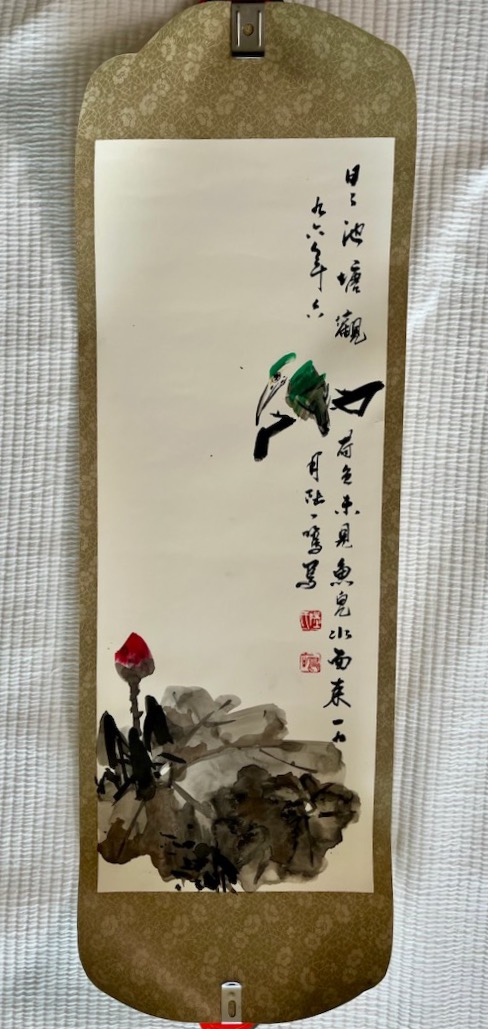 日々池塘觀荷色未見魚兒水面来一九
九六年六月陆一鳴写